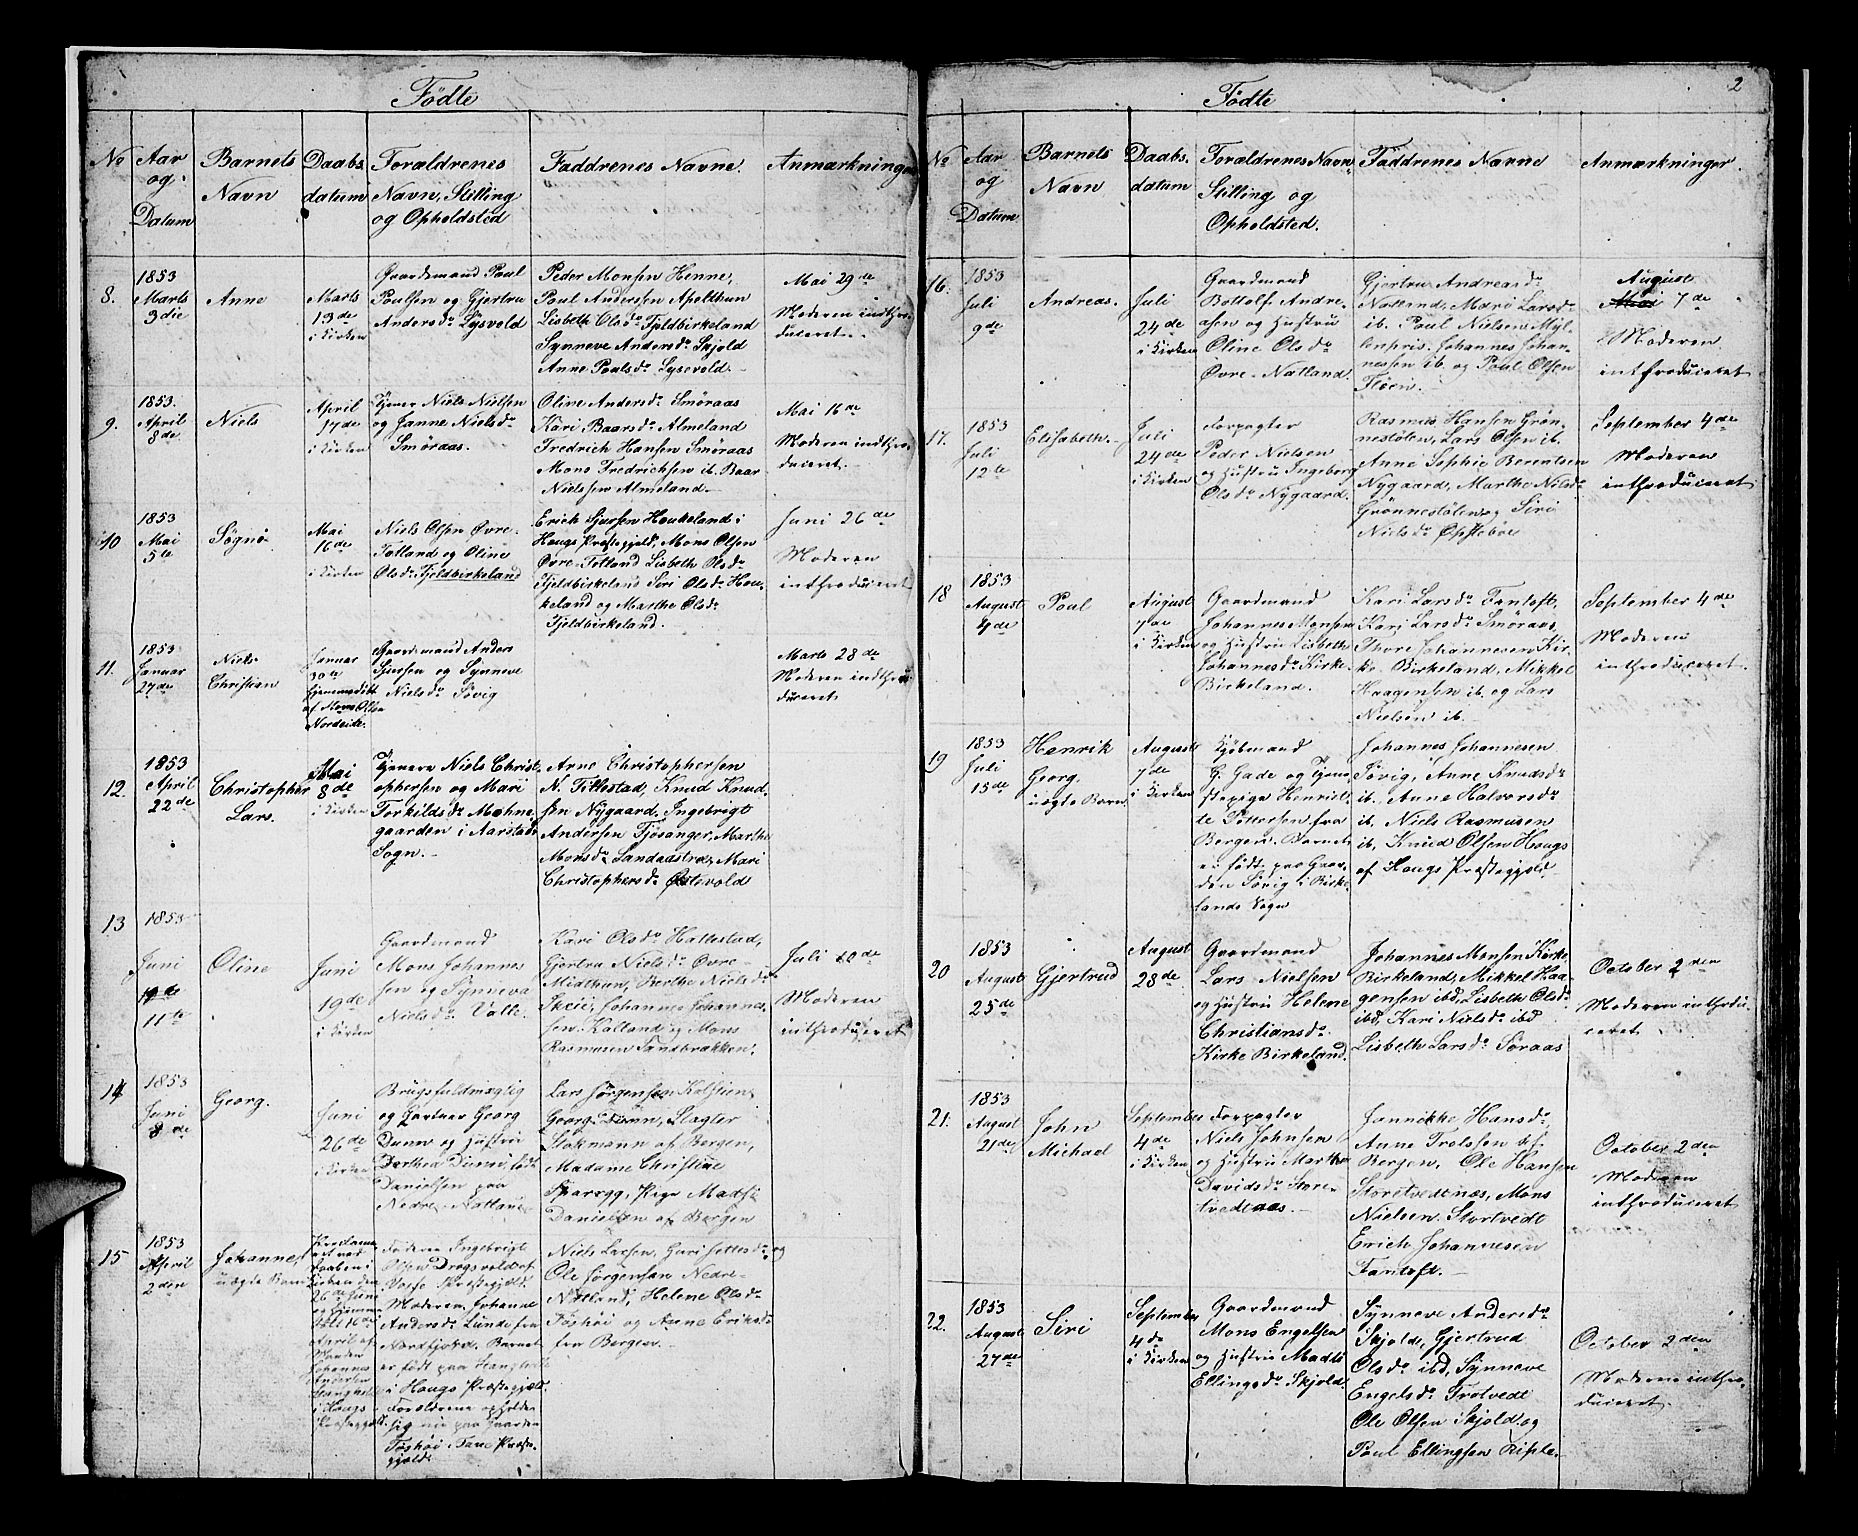 Födte
No
Aar
og
Datum
Barnets
Navn
Daabs
datum
Forældrenes
Navn, Stilling
og Opholdsted
Faddrenes Navne.
Anmærkninger
8.
1853
Marts
3die
Anne
Marts
13de
i Kirken
Gaardmand Paul
Poulsen og Gjertru
Andersdr Lysevold
Peder Monsen Henne,
Poul Andersen Apelthun
Lisbeth Olsdr Fjeldbirkeland
Synneve Andersdr Skjold
Anne Poulsdr Lysevold.
Mai 29de
Moderen inthro-
duceret.
9.
1853.
April
8de
Niels
April
17de
i Kirken
Tjener Niels Nielsen
og Janne Nielsdr
Smøraas.
Oline Andersdr Smøraas
Kari Baarsdr Almeland
Fredrich Hansen Smøraas
Mons Fredrichsen ib. Baar
Nielssen Almeland.
Mai 16de
Moderen inthro-
duceret.
10
1853
Mai
5te
Søgni
Mai
16de
i Kirken
Niels Olsen Øvre-
Totland og Oline
Olsdr Fjeldbirkeland
Erich Sjursen Houkeland i
Hougs Præstegjeld, Mons Olsen
Øvre-Totland Lisbeth Olsdr
Fjeldbirkeland Siri Olsdr Hou-
keland og Marthe Olsdr
Fjeldbirkeland.
Juni 26de
Moderen
inthroduceret
11.
1853
Januar
27de
Niels
Christian
Januar
30te
hjemmedöbt
af Mons Olsen
Nordeide.
Gaardmand Anders
Sjursen og Synneve
Nielsdr Søvig
Marts 28de
Moderen inthro-
duceret
12.
1853
April
22de
Christopher
Lars.
Mai
8de
i Kirken
Tjenere Niels Christ-
ophersen og Mari
Torkildsdr Møhne-
gaarden i Aarstads
Sogn.
Arne Christophersen
N. Tillestad, Knud Knud-
sen Nygaard, Ingebrigt
Andersen Tjøsanger, Marthe
Monsdr Landaastræ, Mari
Christophersdr Østevold
13
1853
Juni
19de
11te
Oline
Juni
19de
i Kirken
Gaardmand
Mons Johannes
sen og Synneva
Nielsdr Valle.
Kari Olsdr Hallestad,
Gjertru Nielsdr Øvre-
Midthun, Berthe Nielsdr
Skeie, Johannes Johannes
sen Kalland og Mons
Rasmusen Sandbrækken.
Juli 10de
Moderen
inthroduceret
14
1853
Juni
8de
Georg.
Juni
26de
i Kirken
Brugsfuldmægtig
og Gartner Georg
Dunn og Hustru
Dorthea Dunn, født
Danielsen paa
Nedre-Nattland
Lars Jørgensen Kolstien,
Georg Dunn, Slagter
Stokmann af Bergen,
Madame Christine
Sparsyg, Pige Madsi
Danielsen af Bergen
15
1853
April
2den
Johannes
uægte Barn
26de Juni
April af
Johannes
Andersen
i Hougs
Præstegjeld.
Faderen Ingebrigt
Olsen Dragsvold af
Vosse Præstegjeld.
Moderen Johanne
Andersdr Lunde fra
Nordfjord. Barnet
er født paa
i Hougs Præstegjeld.
Forældrene opholder
sig nu paa Gaarden
Tøshöi i Fane Præste-
gjeld.
Niels Larsen, Guri Jettesdr og
Ole Jørgensen Nedre-
Natland, Helene Olsdr
Tøshöi og Anne Eriksdr
fra Bergen.
2
Födte
No
Aar
og
Datum
Barnets
Navn
Daabs.
datum
Forældrenes Navn,
Stilling og
Opholdsted.
Faddrenes Navne
Anmærkninger.
16.
1853
Juli
9de
Andreas.
Juli
24de
i Kirken
Gaardmand
Bottolf Andre-
asen og Hustru
Oline Olsdr
Øvre-Natland.
Gjertru Andreasdr
Natland, Mari Larsdr
ib. Poul Nielsen Myl-
Anpris. Johannes Johan-
nessen ib. og Poul Olsen
Fløen.
August
Mai 7de
Moderen
inthroduceret
17.
1853
Juli
12te
Elisabeth.
Juli
24de
i Kirken
Forpagter
Peder Nielsen
og Hustru Ingeborg
Olsdr Nygaard.
Rasmus Hansen Grøn-
nestølen, Lars Olsen ib.
Anne Sophie Berentsen
Nygaard, Marthe Nilsdr
Grønnestølen og Siri
Nielsdr Øpstebøe
September 4de
Moderen
inthroduceret
18
1853
August
4de
Poul
August
7de
i Kirken
Gaardmand
Johannes Monsen
og Hustru Lisbeth
Johannesdr Kirke
Birkeland.
Kari Larsdr Fantoft,
Kari Larsdr Smøraas
Thore Johannesen Kir-
ke Birkeland, Mikkel
Haagensen ib. og Lars
Nielsen ib.
September 4de
Moderen
inthroduceret.
19
1853
Juli
15de
Henrik
Georg.
uægte Barn
August
7de
i Kirken
Kjøbmand
G. Gade og Tjene-
stepige Henriet-
te Pettersen fra
Bergen. Barnet
er født paa Gaar-
den Søvig i Birke-
lands Sogn
Johannes Johannesen
Søvig, Anne Knudsdr
ib. Anne Halvorsdr
ib, Niels Rasmusen
ib, Knud Olsen Hougs
af Hougs Præstegjeld.
20
1853
August
25de
Gjertrud
August
28de
Gaardmand
Lars Nielsen
og Hustru Helene
Christiansdr
Kirke Birkeland.
Johannes Monsen Kirke
Birkeland, Mikkel Haa-
gensen ibd, Lisbeth Olsdr
ibd, Kari Nielsdr ibd
Lisbeth Larsdr Søraas
October 2den
Moderen inthrodu-
ceret.
21.
1853
August
21de
John
Michael
September
4de
i Kirken
Forpagter
Niels Johnsen
og Hustru Marthe
Davidsdr Store-
tvedtnæs.
Jannikke Hansdr
Anne Trolssen af
Bergen, Ole Hansen
Storetvedtnæs, Mons
Nielsen Stortvedt
Erich Johannesen
Fantoft.
October 2den
Moderen
inthroduceret
22.
1853
August
27de
Siri
September
4de
i Kirken
Gaardmand
Mons Engelsen
og Hustru Madti
Ellingsdr Skjold.
Synneve Andersdr
Skjold, Gjertrud
Olsdr ibd, Synneve
Engelsdr Trotvedt
Ole Olsen Skjold og
Poul Ellingsen Riple.
October 2den
Moderen inthro-
duceret.